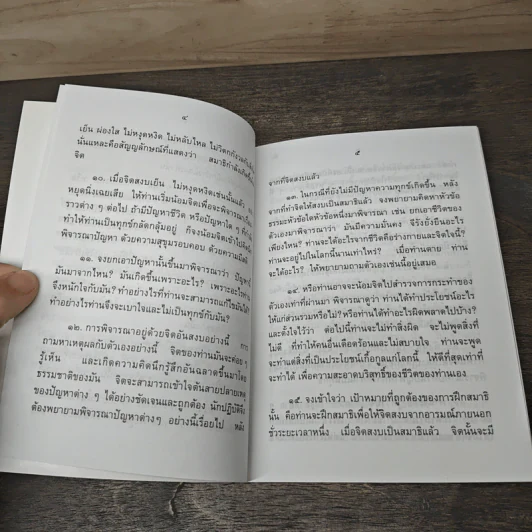 ๔
เย็น ผ่องใส ไม่หงุดหงิด ไม่หลับใหล ไม่วิตกกังวล
นั่นแหละคือสัญญลักษณ์ที่แสดงว่า สมาธิกำลังเกิดขึ้น
จิต
๑๐. เมื่อจิตสงบเย็น ไม่หงุดหงิดเช่นนั้นแล้ว
หยุดนิ่งเฉยเสีย ให้ท่านเริ่มน้อมจิตเพื่อจะพิจารณา
ราวต่าง ๆ ต่อไป ถ้ามีปัญหาชีวิต หรือปัญหาใด ๆ ที่กำลัง
ทำให้ท่านเป็นทุกข์กลัดกลุ้มอยู่ ก็จงน้อมจิตเข้าไป
พิจารณาปัญหา ด้วยความสุขุมรอบคอบ ด้วยความมีสติ
๑๑. จงยกเอาปัญหานั้นขึ้นมาพิจารณาว่า ปัญหา
มันมาจากไหน? มันเกิดขึ้นเพราะอะไร? เพราะอะไรท่าน
จึงหนักใจกับมัน? ทำอย่างไรที่ท่านจะสามารถแก้ไขมันได้
ทำอย่างไรท่านจึงจะเบาใจและไม่เป็นทุกข์กับมัน?
๑๒. การพิจารณาอยู่ด้วยจิตอันสงบอย่างนี้ การ
ถามหาเหตุผลกับตัวเองอย่างนี้ จิตของท่านจะค่อย ๆ
รู้เห็น และเกิดความคิดนึกรู้สึกอันฉลาดขึ้นมาโดย
ธรรมชาติของมัน จิตจะสามารถเข้าใจต้นสายปลายเหตุ
ของปัญหาต่าง ๆ ได้อย่างชัดเจนและถูกต้อง นักปฏิบัติจึง
ต้องพยายามพิจารณาปัญหาต่างๆ อย่างนี้เรื่อยไป หลัง
๕
จากที่จิตสงบแล้ว
๑๓. ในกรณีที่ยังไม่มีปัญหาความทุกข์เกิดขึ้น หลัง
จากที่ทำจิตให้สงบเป็นสมาธิแล้ว จงพยายามคิดหาหัวข้อ
ธรรมะหัวข้อใดหัวข้อหนึ่งมาพิจารณา เช่น ยกเอาชีวิตของ
ตัวเองมาพิจารณาว่า มันมีความมั่นคง จีรังยั่งยืนอะไร
เพียงไหน? ท่านจะได้อะไรจากชีวิตคือร่างกายและจิตใจนี้?
ท่านจะอยู่ไปในโลกนี้นานเท่าไหร่? เมื่อท่านตาย ท่าน
จะได้อะไร? ให้พยายามถามตัวเองเช่นนี้อยู่เสมอ
๑๔. หรือท่านอาจจะน้อมจิตไปสำรวจการกระทำของ
ตัวเองเท่าที่ผ่านมา พิจารณาดูว่า ท่านได้ทำประโยชน์อะไร
ให้แก่ส่วนรวมหรือไม่? หรือท่านได้ทำอะไรผิดพลาดไปบ้าง?
และตั้งใจไว้ว่า ต่อไปนี้ท่านจะไม่ทำสิ่งผิด จะไม่พูดสิ่งที่
ไม่ดี ที่ทำให้คนอื่นเดือดร้อนและไม่สบายใจ ท่านจะพูด
จะทำแต่สิ่งที่เป็นประโยชน์เกื้อกูลแก่โลกนี้ ให้ดีที่สุดเท่าที่
จะทำได้ เพื่อความสะอาดบริสุทธิ์ของชีวิตของท่านเอง
๑๕. จงเข้าใจว่า เป้าหมายที่ถูกต้องของการฝึกสมาธิ
นั้น คือท่านจะฝึกสมาธิเพื่อให้จิตสงบจากอารมณ์ภายนอก
ชั่วระยะเวลาหนึ่ง เมื่อจิตสงบเป็นสมาธิแล้ว จิตนั้นจะมี